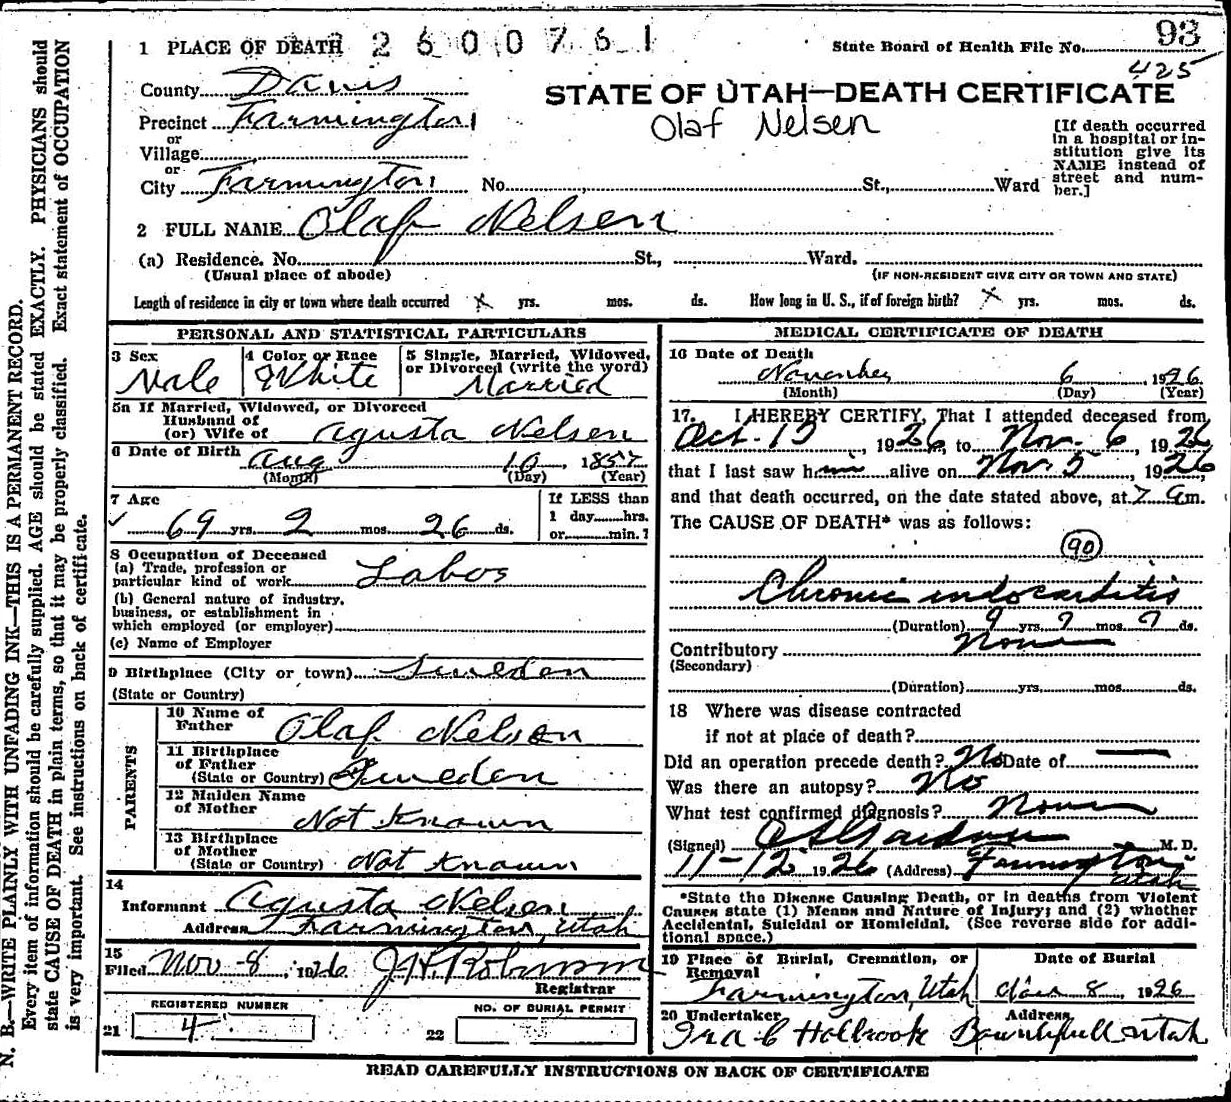 1 PLACE OF DEATH 2600761
State Board of Health File No. 93
425
County Davis
STATE OF UTAH—DEATH CERTIFICATE
Precinct Farmington
Olaf Nelsen
or
Village
or
City Farmington No. St., Ward
[If death occurred
in a hospital or in-
stitution give its
NAME instead of
street and num-
ber.]
2 FULL NAME Olaf Nelsen
(a) Residence. No. St., Ward.
(Usual place of abode) (IF NON-RESIDENT GIVE CITY OR TOWN AND STATE)
Length of residence in city or town where death occurred x yrs. mos. ds. How long in U. S., if of foreign birth? x yrs. mos. ds.
PERSONAL AND STATISTICAL PARTICULARS
3 Sex 4 Color or Race 5 Single, Married, Widowed,
or Divorced (write the word)
Male White Married
5a If Married, Widowed, or Divorced
Husband of
(or) Wife of Agusta Nelsen
6 Date of Birth Aug 10, 1857
(Month) (Day) (Year)
7 Age If LESS than
1 day hrs.
69 yrs. 2 mos. 26 ds. or min.?
8 Occupation of Deceased
(a) Trade, profession or
particular kind of work Labor
(b) General nature of industry,
business, or establishment in
which employed (or employer)
(c) Name of Employer
9 Birthplace (City or town) Sweden
(State or Country)
PARENTS
10 Name of
Father Olaf Nelson
11 Birthplace
of Father
(State or Country) Sweden
12 Maiden Name
of Mother Not Known
13 Birthplace
of Mother
(State or Country) Not Known
14
Informant Agusta Nelsen
Address Farmington, Utah
15
Filed Nov-8, 1926 J H Robinson
Registrar
REGISTERED NUMBER NO. OF BURIAL PERMIT
21 4 22
MEDICAL CERTIFICATE OF DEATH
16 Date of Death
November 6, 1926
(Month) (Day) (Year)
17. I HEREBY CERTIFY, That I attended deceased from
Oct. 15, 1926, to Nov. 6, 1926
that I last saw him alive on Nov. 5, 1926,
and that death occurred, on the date stated above, at 7 am.
The CAUSE OF DEATH* was as follows:
90
Chronic endocarditis
(Duration) 9 yrs. ? mos. ? ds.
Contributory None
(Secondary)
(Duration) yrs. mos. ds.
18 Where was disease contracted
if not at place of death?
Did an operation precede death? No Date of —
Was there an autopsy? No
What test confirmed diagnosis? None
(Signed) M. D.
11-12, 1926 (Address) Farmington
Utah
*State the Disease Causing Death, or in deaths from Violent
Causes state (1) Means and Nature of Injury; and (2) whether
Accidental, Suicidal or Homicidal. (See reverse side for addi-
tional space.)
19 Place of Burial, Cremation, or
Removal
Date of Burial
Farmington, Utah 8 1926
20 Undertaker Address
Ira C Holbrook Bountiful Utah
READ CAREFULLY INSTRUCTIONS ON BACK OF CERTIFICATE
N. B.—WRITE PLAINLY WITH UNFADING INK—THIS IS A PERMANENT RECORD.
Every item of information should be carefully supplied. AGE should be stated EXACTLY. PHYSICIANS should
state CAUSE OF DEATH in plain terms, so that it may be properly classified. Exact statement of OCCUPATION
is very important. See instructions on back of certificate.